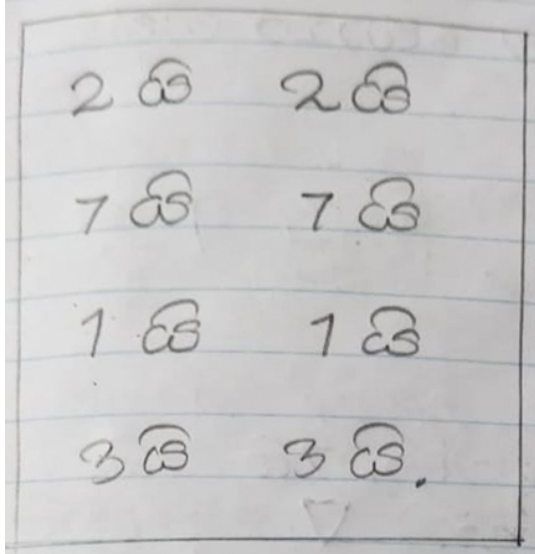 2 යි 2 යි
7 යි 7 යි
1 යි 1 යි
3 යි 3 යි.